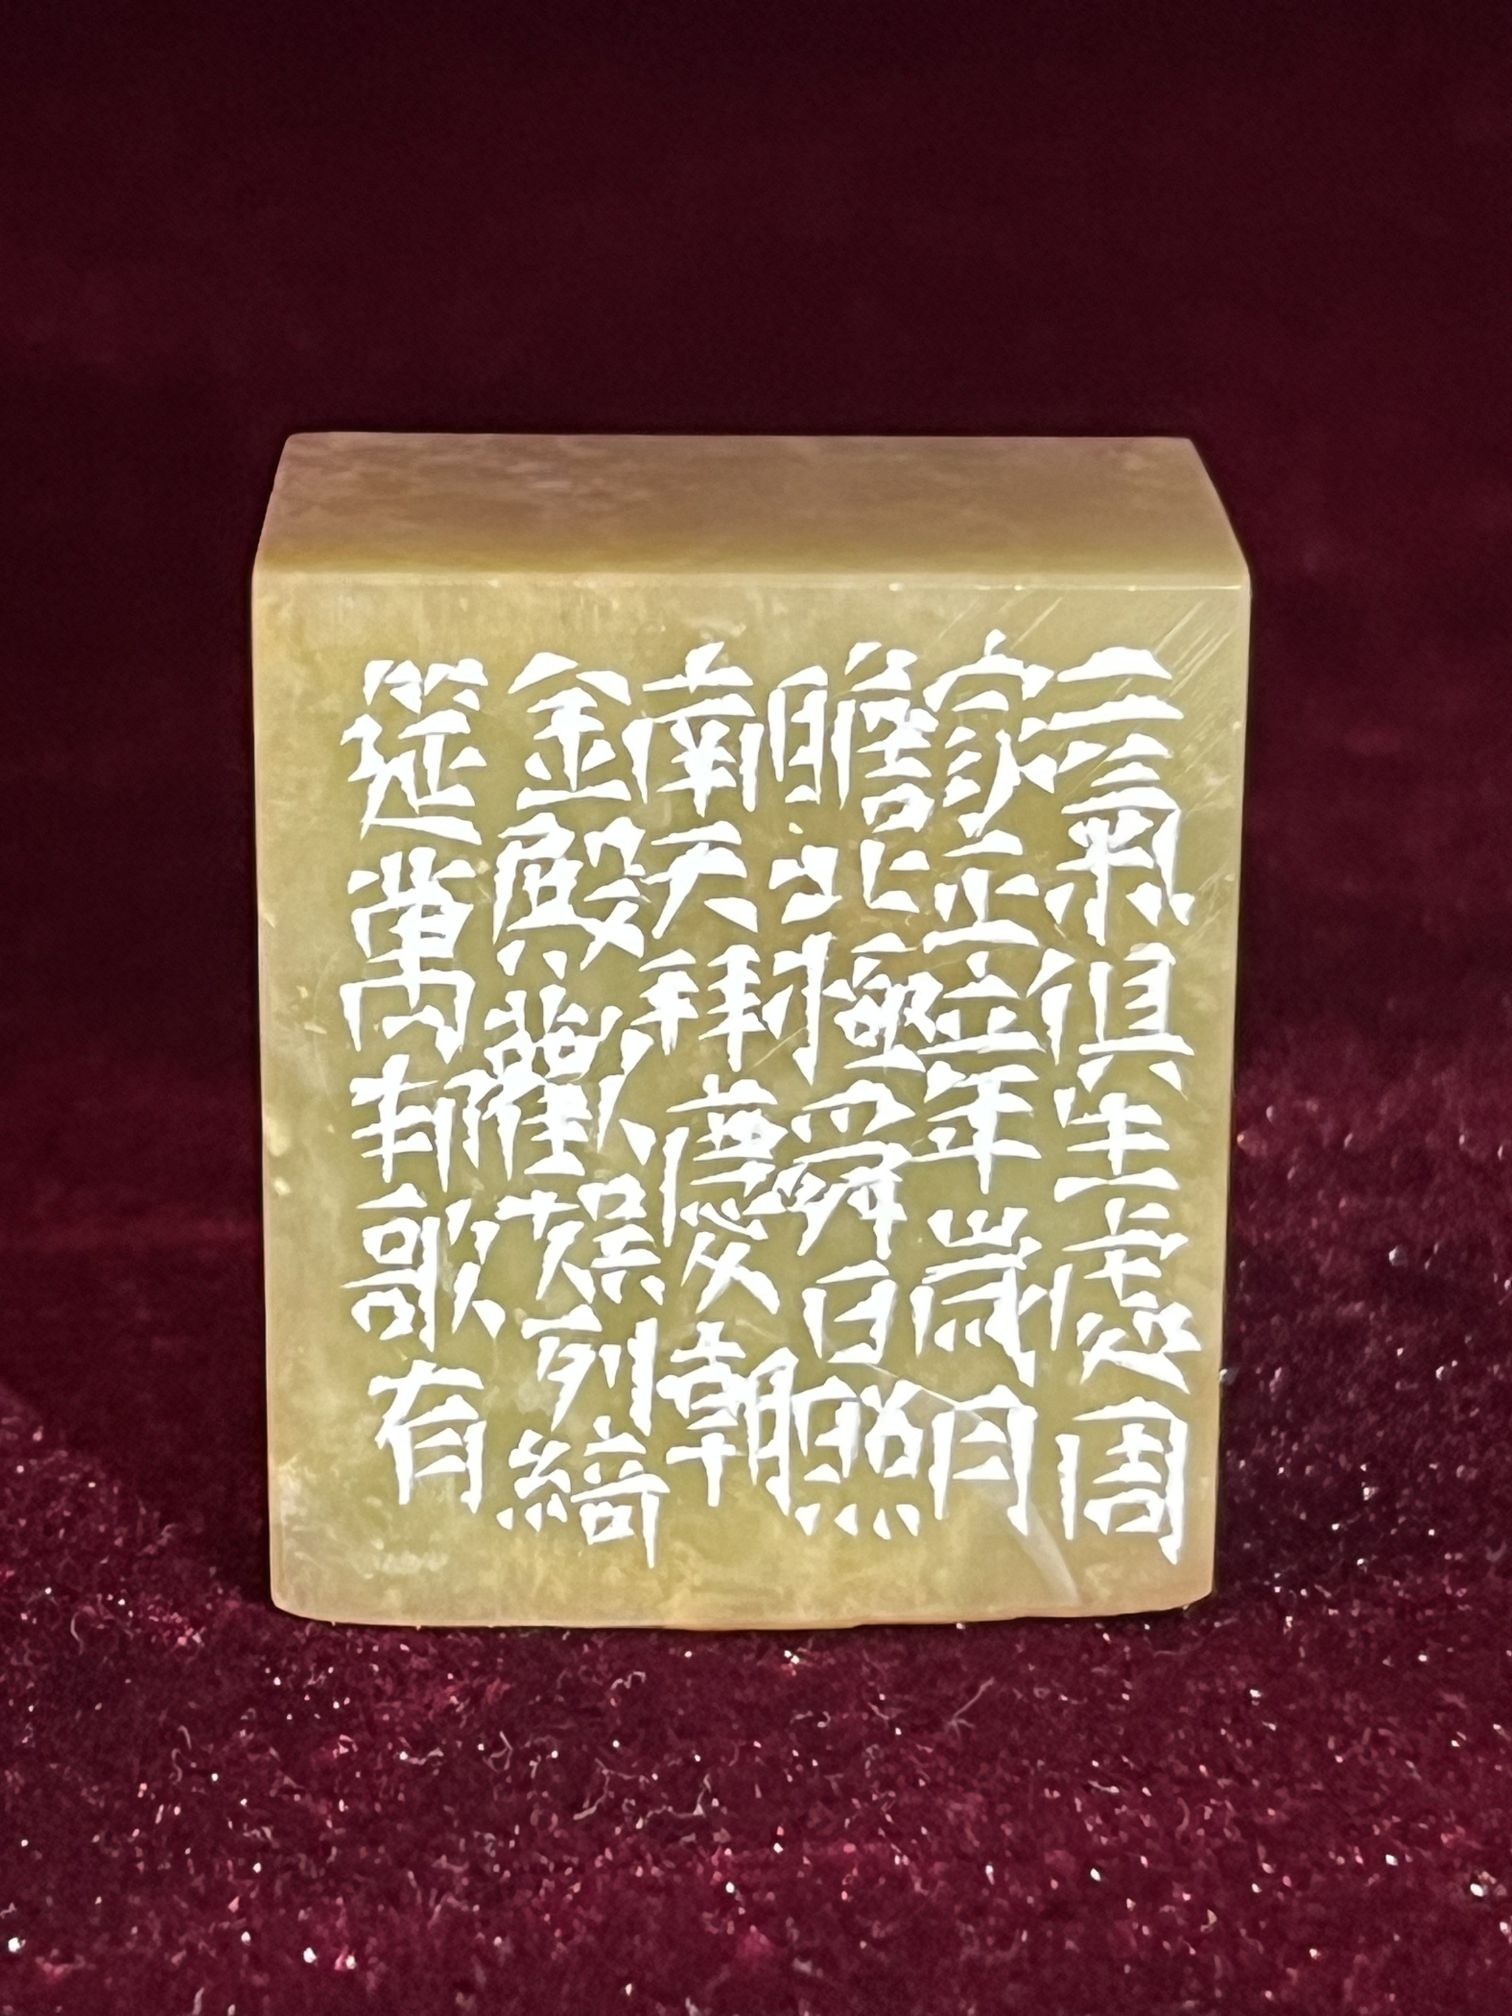 二氣俱生處周
家正立年歲月
瞻北極舜日照
南天拜慶朝
金殿歡娛列綺
筵萬邦歌有